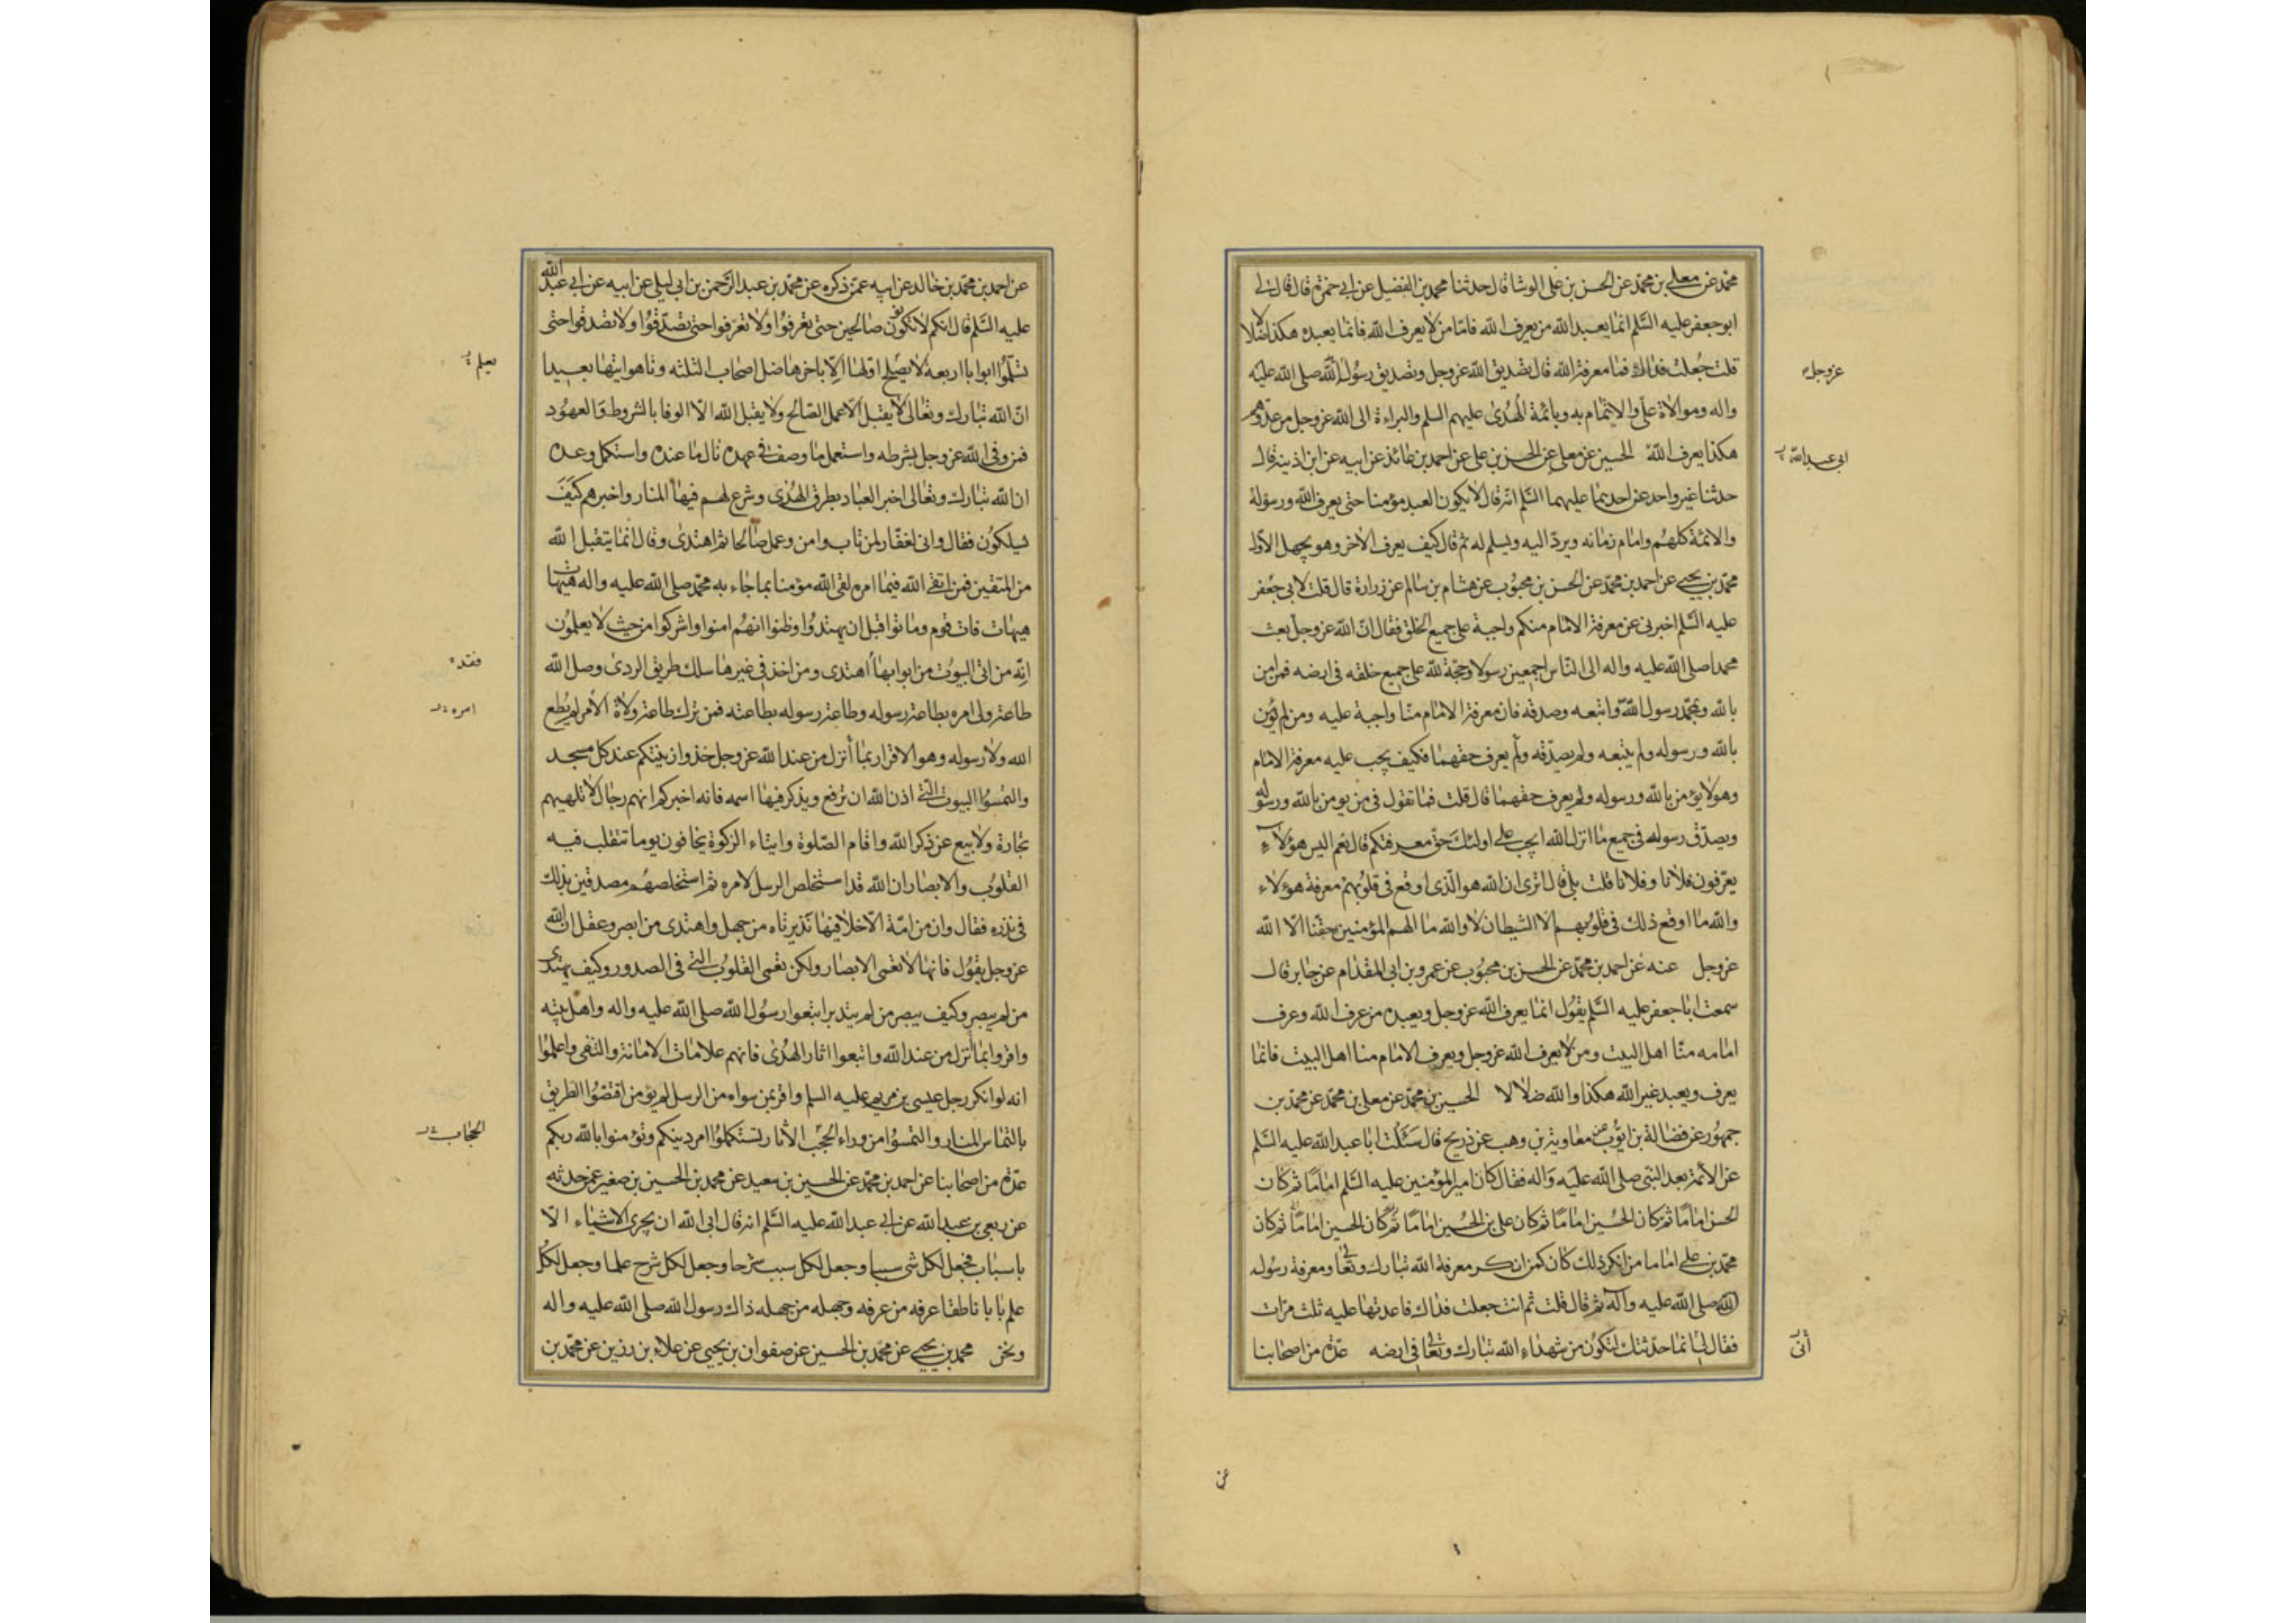 محمد عن معلى بن محمد عن الحسن بن على الوشا قال حدثنا محمد بن الفضيل عن ابى حمزة قال قال لى
ابو جعفر عليه السلم انما يعبد الله من يعرف الله فاما من لا يعرف الله فانما يعبده هكذا ضلالا
قلت جعلت فداك فما معرفة الله قال تصديق الله عز وجل وتصديق رسول الله صلى الله عليه
عز وجل
واله وموالاة على والايتمام به وبائمة الهدى عليهم السلم والبراءة الى الله عز وجل من عدوهم
هكذا يعرف الله الحسين عن معلى عن الحسن بن على عن احمد بن عائذ عن ابيه عن ابن اذينه قال
ابى عبد الله
حدثنا غير واحد عن احدهما عليهما السلم انه قال لا يكون العبد مؤمنا حتى يعرف الله ورسوله
والائمة كلهم وامام زمانه ويرد اليه ويسلم له ثم قال كيف يعرف الاخر وهو يجهل الاول
محمد بن يحيى عن احمد بن محمد عن الحسن بن محبوب عن هشام بن سالم عن زرارة قال قلت لابى جعفر
عليه السلم اخبرنى عن معرفة الامام منكم واجبة على جميع الخلق فقال ان الله عز وجل بعث
محمدا صلى الله عليه واله الى الناس اجمعين رسولا وحجة لله على جميع خلقه فى ارضه فمن امن
بالله وبمحمد رسول الله واتبعه وصدقه فان معرفة الامام منا واجبة عليه ومن لم يؤمن
بالله ورسوله ولم يتبعه ولم يصدقه ولم يعرف حقهما فكيف يجب عليه معرفة الامام
وهو لا يؤمن بالله ورسوله ولم يعرف حقهما قال قلت فما تقول فى من يومن بالله ورسوله
ويصدق رسوله فى جميع ما انزل الله ايجب على اولئك حق معرفتكم قال نعم اليس هؤلاء
يعرفون فلانا وفلانا قلت بلى قال اترى ان الله هو الذى اوقع فى قلوبهم معرفة هؤلاء
والله ما اوقع ذلك فى قلوبهم الا الشيطان لا والله ما الهم المؤمنين حقنا الا الله
عز وجل عنه عن احمد بن محمد عن الحسن بن محبوب عن عمرو بن ابى المقدام عن جابر قال
سمعت ابا جعفر عليه السلم يقول انما يعرف الله عز وجل ويعبده من عرف الله وعرف
امامه منا اهل البيت ومن لا يعرف الله عز وجل ويعرف الامام منا اهل البيت فانما
يعرف ويعبد غير الله هكذا والله ضلالا الحسين بن محمد عن معلى بن محمد عن محمد بن
جمهور عن فضالة بن ايوب عن معاوية بن وهب عن ذريح قال سئلت ابا عبد الله عليه السلم
عن الائمة بعد النبى صلى الله عليه واله فقال كان امير المؤمنين عليه السلم اماما ثم كان
الحسن اماما ثم كان الحسين اماما ثم كان على بن الحسين اماما ثم كان الحسين اماما ثم كان
محمد بن على اماما من انكر ذلك كان كمن انكر معرفة الله تبارك وتعالى ومعرفة رسول
الله صلى الله عليه واله ثم قال قلت ثم انت جعلت فداك فاعدتها عليه ثلث مرات
فقال لى انما حدثتك لتكون من شهداء الله تبارك وتعالى فى ارضه عدة من اصحابنا
انى
عن
عن احمد بن محمد بن خالد عن ابيه عمن ذكره عن محمد بن عبد الرحمن بن ابى ليلى عن ابيه عن ابى عبد الله
عليه السلم قال انكم لا تكونون صالحين حتى تعرفوا ولا تعرفوا حتى تصدقوا ولا تصدقوا حتى
تسلموا ابوابا اربعة لا يصلح اولها الا باخرها ضل اصحاب الثلثه وتاهوا تيها بعيدا
ان الله تبارك وتعالى لا يقبل الا عمل الصالح ولا يقبل الله الا الوفا بالشروط والعهود
فمن وفى الله عز وجل بشرطه واستعمل ما وصف فى عهده نال ما عنده واستكمل وعده
ان الله تبارك وتعالى اخبر العباد بطرق الهدى وشرع لهم فيها المنار واخبرهم كيف
يسلكون فقال وانى لغفار لمن تاب وامن وعمل صالحا ثم اهتدى وقال انما يتقبل الله
من المتقين فمن اتقى الله فيما امره لقى الله مؤمنا بما جاء به محمد صلى الله عليه واله هيهات
هيهات فات قوم وماتوا قبل ان يهتدوا وظنوا انهم امنوا واشركوا من حيث لا يعلمون
انه من اتى البيوت من ابوابها اهتدى ومن اخذ فى غيرها سلك طريق الردى وصل الله
فقد
طاعة ولى امره بطاعة رسوله وطاعة رسوله بطاعته فمن ترك طاعة ولاة الامر لم يطع
امره
الله ولا رسوله وهو الاقرار بما أنزل من عند الله عز وجل خذوا زينتكم عند كل مسجد
والتمسوا البيوت التى اذن الله ان ترفع ويذكر فيها اسمه فانه اخبركم انهم رجال لا تلهيهم
تجارة ولا بيع عن ذكر الله واقام الصلوة وايتاء الزكوة يخافون يوما تتقلب فيه
القلوب والابصار ان الله قد استخلص الرسل لامره ثم استخلصهم مصدقين بذلك
فى نذره فقال وان من امة الا خلا فيها نذير تاه من جهل واهتدى من ابصر وعقل ان الله
عز وجل يقول فانها لا تعمى الابصار ولكن تعمى القلوب التى فى الصدور وكيف يهتدى
من لم يبصر وكيف يبصر من لم يتدبر اتبعوا رسول الله صلى الله عليه واله واهل بيته
واقروا بما أنزل من عند الله واتبعوا اثار الهدى فانهم علامات الامانة والتقى واعلموا
انه لو انكر رجل عيسى بن مريم عليه السلم واقر بمن سواه من الرسل لم يؤمن اقتصوا الطريق
بالتماس المنار والتمسوا من وراء الحجب الآثار تستكملوا امر دينكم وتؤمنوا بالله ربكم
الحجاب
عدة من اصحابنا عن احمد بن محمد عن الحسين بن سعيد عن محمد بن الحسين بن صغير عمن حدثه
عن ربعى بن عبد الله عن ابى عبد الله عليه السلم انه قال ابى الله ان يجرى الاشياء الا
باسباب فجعل لكل شى سببا وجعل لكل سبب شرحا وجعل لكل شرح علما وجعل لكل
علم بابا ناطقا عرفه من عرفه وجهله من جهله ذاك رسول الله صلى الله عليه واله
ونحن محمد بن يحيى عن محمد بن الحسين عن صفوان بن يحيى عن علاء بن رزين عن محمد بن